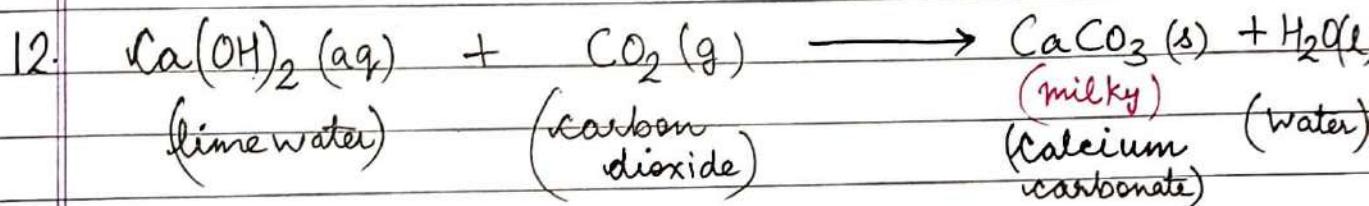 12. Ca(OH)₂ (aq) + CO₂ (g) ⟶ CaCO₃ (s) + H₂O(l
(lime water) (carbon dioxide) (milky) (Calcium carbonate) (water)